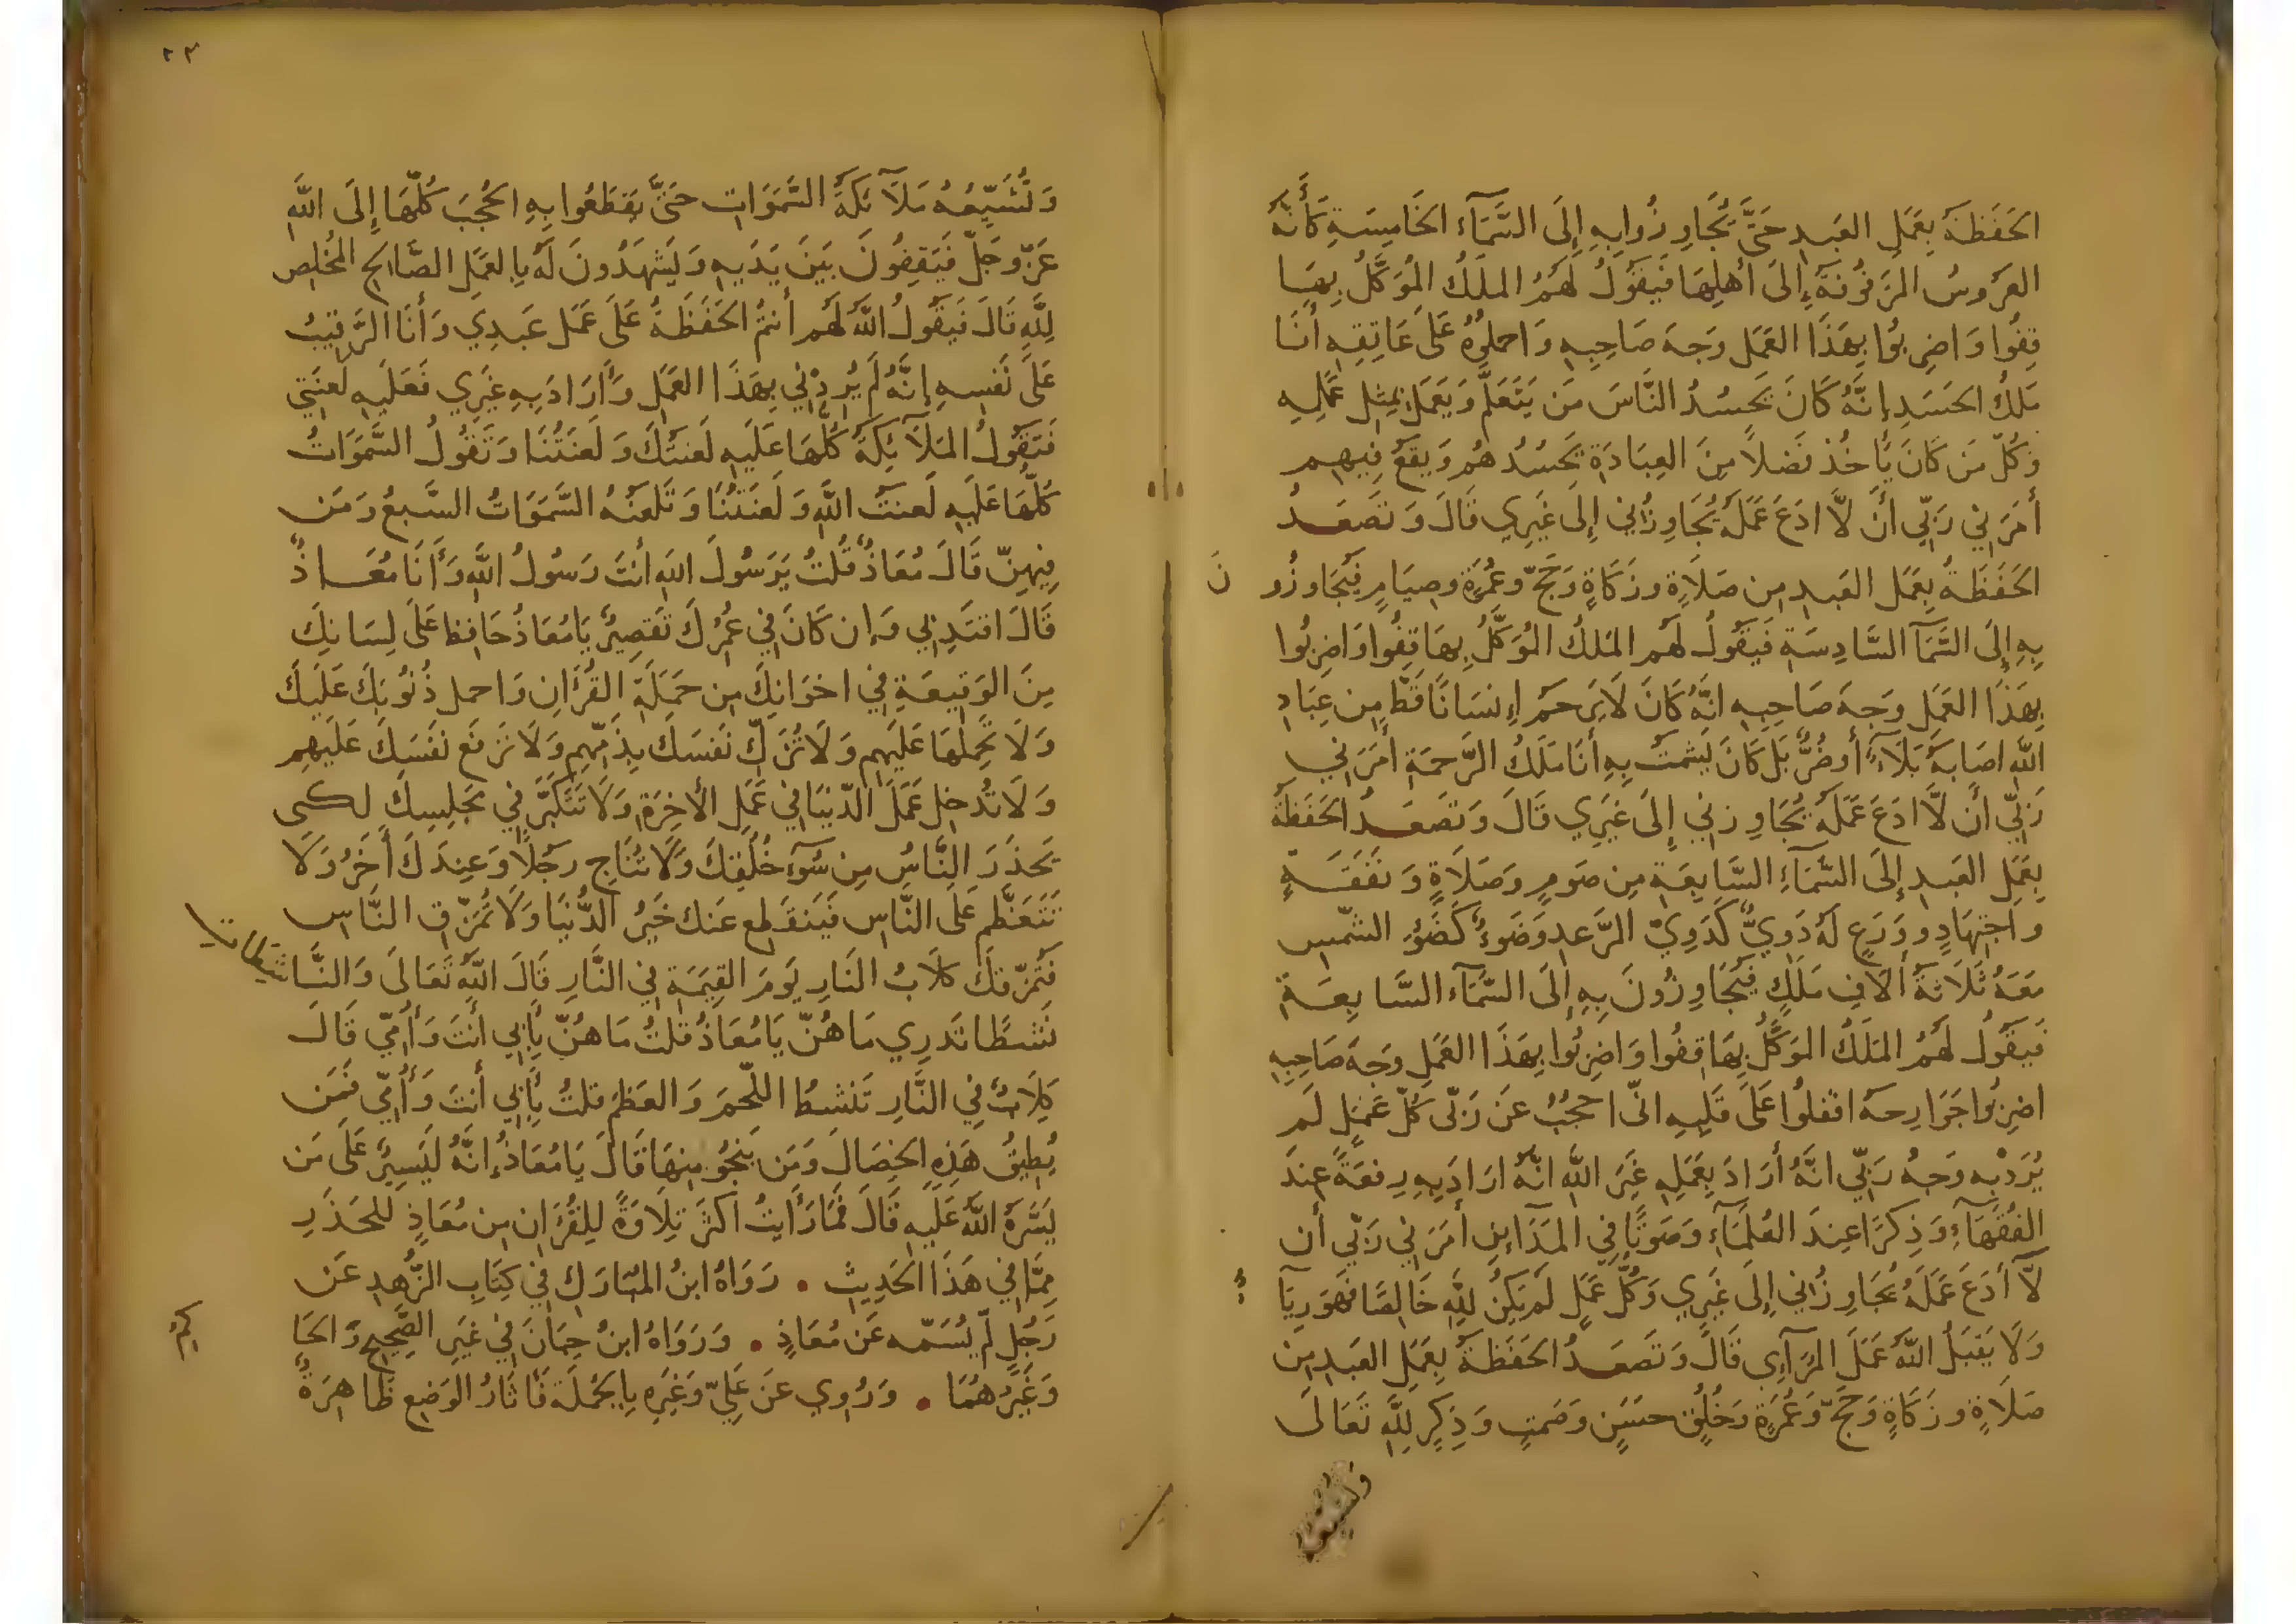 الحَفَظَةُ بِعَمَلِ العَبدِ حَتَّى يُجَاوِزُوا بِهِ إِلَى السَّمَآءِ الخَامِسَةِ كَأَنَّهُ
العَرُوسُ المَزفُوفَةُ إِلَى أَهلِهَا فَيَقُولُ لَهُمُ المَلَكُ المُوَكَّلُ بِهَا
قِفُوا وَاضرِبُوا بِهَذَا العَمَلِ وَجهَ صَاحِبِهِ وَاحمِلُوهُ عَلَى عَاتِقِهِ أَنَا
مَلَكُ الحَسَدِ إِنَّهُ كَانَ يَحسُدُ النَّاسَ مَن يَتَعَلَّم وَيَعمَل بِمِثلِ عَمَلِهِ
وَكُلّ مَن كَانَ يَأخُذ فَضلًا مِنَ العِبَادَةِ يَحسُدُهُم وَيَقَعُ فِيهِم
أَمَرَنِي رَبِّي أَن لَّا ادَعَ عَمَلَهُ يُجَاوِزُنِي إِلَى غَيرِي قَالَ وَتَصعَدُ
الحَفَظَةُ بِعَمَلِ العَبدِ مِن صَلَاةٍ وزَكَاةٍ وَحَجّ وعُمرَةٍ وصِيَامٍ فَيُجَاوِزُو نَ
بِهِ إِلَى السَّمَآ السَّادِسَةِ فَيَقُولُ لَهُم المَلَكُ المُوَكَّلُ بِهَا قِفُوا وَاضرِبُوا
بِهَذَا العَمَلِ وَجهَ صَاحِبِهِ انَّهُ كَانَ لَا يَرحَم إِنسَانًا قَطُّ مِن عِبَادِ
اللَّهِ اصَابَهُ بَلَآءٌ أَو ضُرٌّ بَل كَانَ يَشمَتُ بِهِ أَنَا مَلَكُ الرَّحمَةِ أَمَرَنِي
رَبِّي أَن لَّا ادَعَ عَمَلَهُ يُجَاوِزنِي إِلَى غَيرِي قَالَ وَتَصعَدُ الحَفَظَةُ
بِعَمَلِ العَبدِ إِلَى السَّمَآءِ السَّابِعَةِ مِن صَومٍ وَصَلَاةٍ وَنَفَقَةٍ
وَاجتِهَادٍ وَوَرَعٍ لَهُ دَوِيٌّ كَدَوِيّ الرَّعدِ وَضَوءٌ كَضَوءِ الشَّمسِ
مَعَهُ ثَلَاثَةُ آلَافِ مَلَكٍ فَيُجَاوِزُونَ بِهِ إِلَى السَّمَآءِ السَّابِعَةِ
فَيَقُولُ لَهُمُ المَلَكُ المُوَكَّلُ بِهَا قِفُوا وَاضرِبُوا بِهَذَا العَمَلِ وَجهَ صَاحِبِهِ
اضرِبُوا جَوَارِحهُ اقفلُوا عَلَى قَلبِهِ انّى احجُبُ عَن رَبّى كُلّ عَمَلٍ لَم
يُرَد بِه وَجهُ رَبِّي انَّهُ أَرَادَ بِعَمَلِهِ غَيرَ اللَّهِ انَّهُ ارَادَ بِهِ رِفعَةً عِندَ
الفُقَهَآءِ وَذِكرًا عِندَ العُلَمَآءِ وَصَوتًا فِي المَدَآئِنِ أَمَرَنِي رَبِّي أَن
لَّا أَدَعَ عَمَلَهُ يُجَاوِزُنِي إِلَى غَيرِي وَكُلُّ عَمَلٍ لَم يَكُن لِلَّهِ خَالِصًا فَهوَ رِيَآ ءٌ
وَلَا يَقبَلُ اللَّهُ عَمَلَ المُرَآءِي قَالَ وَتَصعَدُ الحَفَظَةُ بِعَمَلِ العَبدِ مِن
صَلَاةٍ وزَكَاةٍ وَحَجّ وَعُمرَةٍ وَخُلُقٍ حسَنٍ وَصَمتٍ وَذِكرٍ لِلَّهِ تَعَالَى
وَتُشَيِّعُهُ
٢٣
وَتُشَيِّعُهُ مَلَآئِكَةُ السَّمَوَاتِ حَتَّى يَقطَعُوا بِهِ الحُجُبَ كُلَّهَا إِلَى اللَّهِ
عَزّ وَجَلّ فَيَقِفُونَ بَينَ يَدَيهِ وَيَشهَدُونَ لَهُ بِالعَمَلِ الصَّالِحِ المُخلِصِ
لِلَّهِ قَالَ فَيَقُولُ اللَّهُ لَهُم أَنتُمُ الحَفَظَةُ عَلَى عَمَلِ عَبدِي وَأَنَا الرَّقِيبُ
عَلَى نَفسِهِ إِنَّهُ لَم يُرِدنِي بِهَذَا العَمَلِ وَأَرَادَ بِهِ غَيرِي فَعَلَيهِ لَعنَتِي
فَتَقُولُ المَلَآئِكَةُ كُلُّهَا عَلَيهِ لَعنَتُكَ وَلَعنَتُنَا وَتَقُولُ السَّمَوَاتُ
كُلُّهَا عَلَيهِ لَعنَتُ اللَّهِ وَلَعنَتُنَا وَتَلعَنُهُ السَّمَوَاتُ السَّبعُ وَمَن
فِيهِنّ قَالَ مُعَاذٌ قُلتُ يَرَسُولَ اللهِ أَنتَ رَسُولُ اللَّهِ وَأَنَا مُعَاذٌ
قَالَ اقتَدِ بِي وَإِن كَانَ فِي عُمُرِكَ تَقصِيرٌ يَا مُعَاذُ حَافِظ عَلَى لِسَانِكَ
مِنَ الوَقِيعَةِ فِي اخوَانِكَ مِن حَمَلَةِ القُرآنِ وَاحمل ذُنُوبَكَ عَلَيكَ
وَلَا تَحمِلهَا عَلَيهِم وَلَا تُزَكِّ نَفسَكَ بِذَمِّهِم وَلَا تَرفَع نَفسَكَ عَلَيهِم
وَلَا تُدخِل عَمَلَ الدّنيَا فِي عَمَلِ الأَخِرَةِ وَلَا تَتَكَبَّر فِي مَجلِسِكَ لكى
يَحذَرَ النَّاسُ مِن سُوٓءِ خُلُقِكَ وَلَا تُنَاجِ رجُلًا وَعِندَكَ أَخَرُ وَلَا
تَتَعَظَّم عَلَى النَّاسِ فَيَنقَطِع عَنكَ خَيرُ الدُّنيَا وَلَا تُمَزّقِ النَّاسَ
فَتُمَزّقكَ كلَابُ النَارِ يَومَ القِيَمَةِ فِي النَّارِ قَالَ اللَّهُ تَعَالَى وَالنَّاشطَاتِ
نَشطًا تَدرِي مَا هُنَّ يَا مُعَاذُ قُلتُ مَا هُنّ بِأَبِي أَنتَ وَأُمِّي قَالَ
كِلَابٌ فِي النَّارِ تَنشطُ اللّحمَ وَالعَظمَ قلتُ بِأَبِي أَنتَ وَأُمِّي فَمَن
يُطِيقُ هَذِهِ الخِصَالَ وَمَن يَنجُو مِنهَا قَالَ يَا مُعَاذُ إِنَّهُ لَيَسِيرٌ عَلَى مَن
يَسَّرَهُ اللَّهُ عَلَيهِ قَالَ فَمَا رَأَيتُ اكثَرَ تِلَاوَةً لِلقُرآنِ مِن مُعَاذٍ لِلحَذَرِ
مِمَّا فِي هَذَا الحَدِيثِ • رَوَاهُ ابنُ المُبَارَكِ فِي كِتَابِ الزُّهدِ عَن
رَجُلٍ لَّم يُسَمّه عَن مُعَاذٍ • وَرَوَاهُ ابنُ حِبَانَ فِي غَيرِ الصَّحِيحِ وَالحَاكِمُ
وَغَيرُهُمَا • وَرُوِي عَن عَلِيّ وَغَيرِهِ بِالجُملَةِ فَآثَارُ الوَضعِ ظَاهِرَةٌ